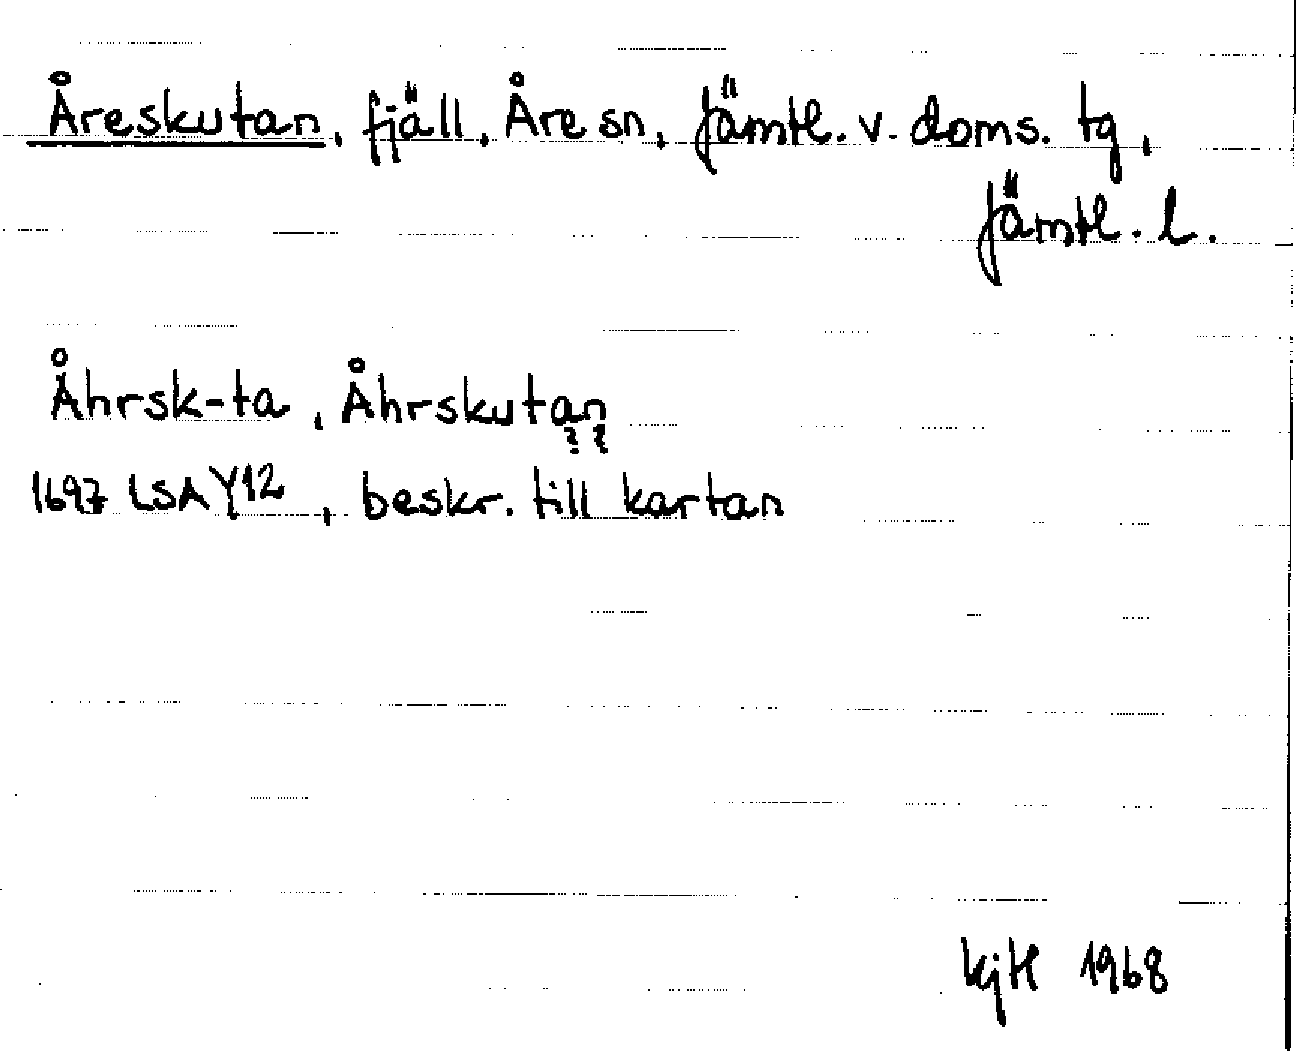 Åreskutan, fjäll, Åre sn, Jämtl. v. doms. tg,
Jämtl. l.
Åhrsk-ta, Åhrskutan
? ?
1697 LSA Y12, beskr. till kartan
KjH 1968